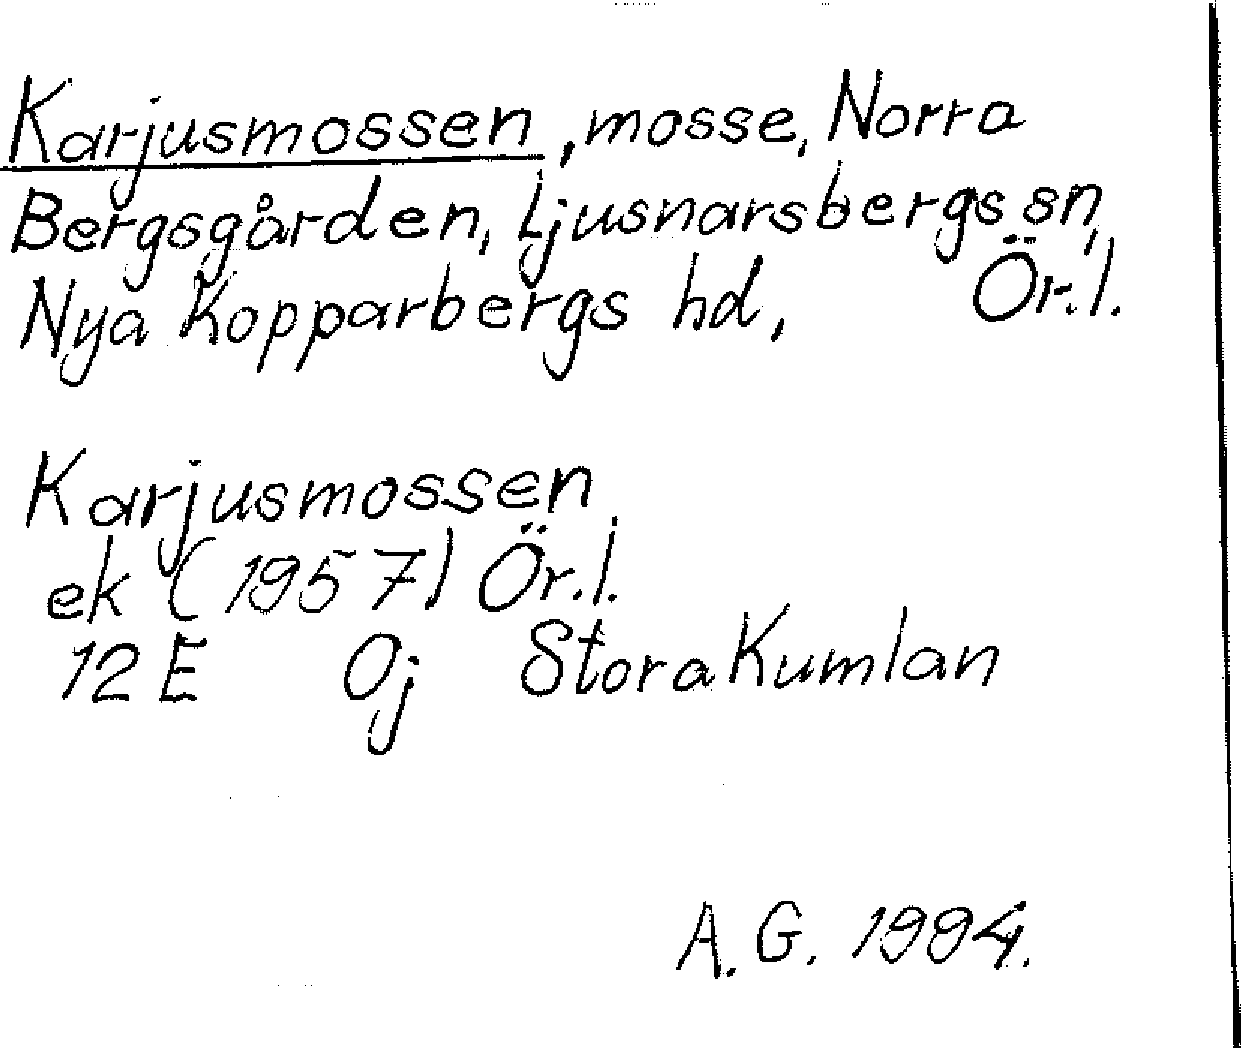 Karjusmossen, mosse, Norra
Bergsgården, Ljusnarsbergs sn,
Nya Kopparbergs hd, Ör.l.
Karjusmossen
ek (1957) Ör.l.
12E 0j Stora Kumlan
A.G. 1994.